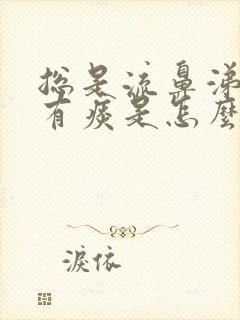 总是流鼻涕
有痰是怎麼
淚依